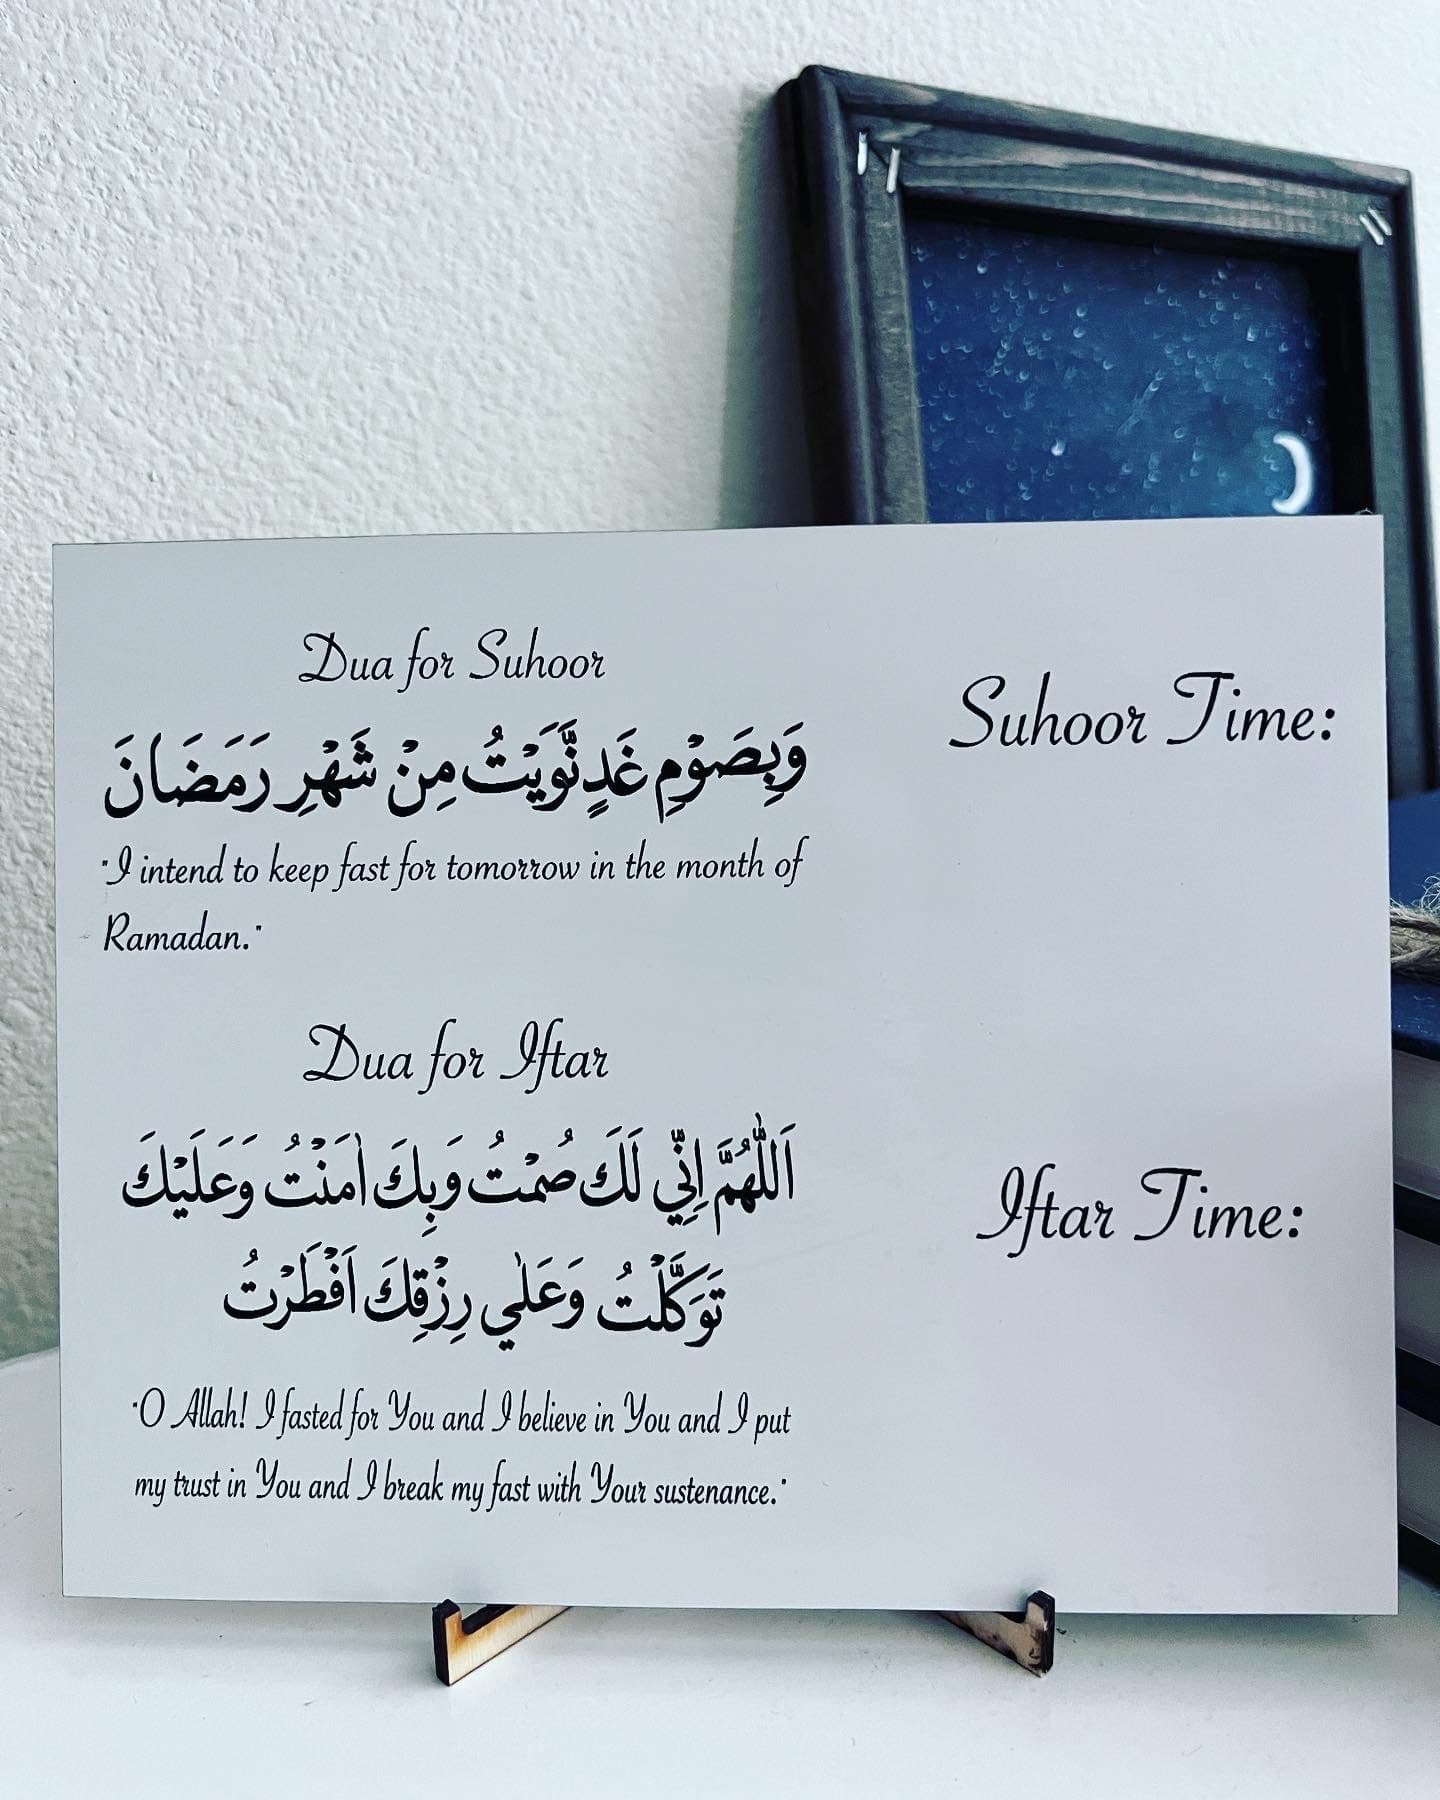 Dua for Suhoor
وَبِصَوْمِ غَدٍ نَّوَيْتُ مِنْ شَهْرِ رَمَضَانَ
"I intend to keep fast for tomorrow in the month of
Ramadan."
Dua for Iftar
اَللّٰهُمَّ اِنِّي لَكَ صُمْتُ وَبِكَ اٰمَنْتُ وَعَلَيْكَ
تَوَكَّلْتُ وَعَلٰي رِزْقِكَ اَفْطَرْتُ
"O Allah! I fasted for You and I believe in You and I put
my trust in You and I break my fast with Your sustenance."
Suhoor Time:
Iftar Time: